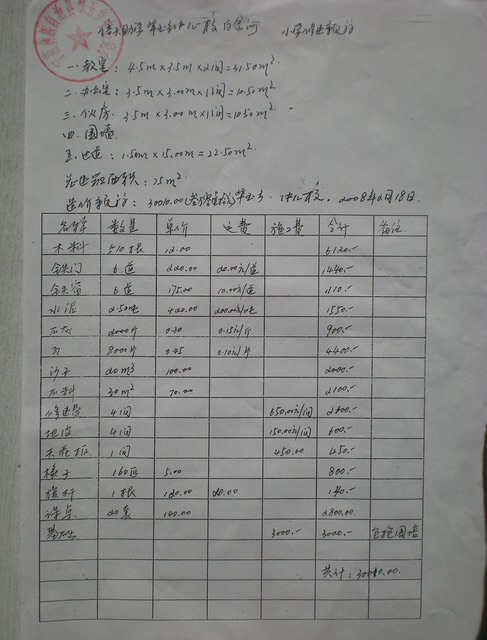 小学修建预算
一.教室: 4.5m×3.5m×2间=31.50m².
二.办公室: 3.5m×3.00m×1间=10.50m².
三.伙房. 3.5m×3.00m×1间=10.50m².
四.围墙
五.过道: 1.50m×15.00m=22.50m².
总建筑面积: 75m².
造价预算: 30010.00 中心校. 2008年2月18日.
名称 数量 单价 运费 施工费 合计 备注
木料 510根 12.00 6120.-
铁门 6道 220.00 20.00元/道 1440.-
铁窗 6道 175.00 10.00元/道 1110.-
水泥 2.50吨 420.00 200.00元/吨 1550.-
石灰 2000斤 0.30 0.15元/斤 900.-
瓦 8000片 0.45 0.10元/片 4400.-
沙子 20m³ 100.00 2000.-
石料 30m³ 70.00 2100.-
修建 4间 650.00元/间 2600.-
地皮 4间 150.00元/间 600.-
天花板 1间 450.00 450.-
椽子 160匹 5.00 800.-
旗杆 1根 120.00 20.00 140.-
课桌 20套 140.00 2800.00
基础 3000.- 3000.- 包括围墙
共计: 30010.00.